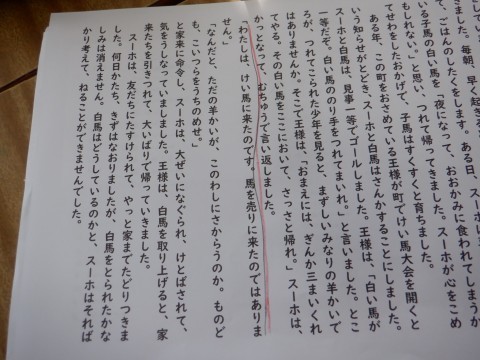 きました。毎朝、早く起きると
て、ごはんのしたくをします。ある日、スーホ
いる子馬の白い馬を「夜になって、おおかみに食われてしまうか
もしれない。」と思い、つれて帰ってきました。スーホが心をこめ
てせわをしたおかげで、子馬はすくすくと育ちました。
ある年、この町をおさめている王様が町でけい馬大会を開くと
いう知らせがとどき、スーホと白馬はさんかすることにしました。
スーホと白馬は、見事一等でゴールしました。王様は、「白い馬が
一等だぞ。白い馬ののり手をつれてまいれ。」と言いました。とこ
ろが、つれてこられた少年を見ると、まずしいみなりの羊かいで
はありませんか。そこで王様は、「おまえには、ぎんか三まいくれ
てやる。その白い馬をここにおいて、さっさと帰れ。」スーホは、
かっとなって、むちゅうで言い返しました。
「わたしは、けい馬に来たのです。馬を売りに来たのではありま
せん。」
「なんだと、ただの羊かいが、このわしにさからうのか。ものど
も、こいつらをうちのめせ。」
と家来に命令し、スーホは、大ぜいになぐられ、けとばされて、
気をうしなっていましました。王様は、白馬を取り上げると、家
来たちを引きつれて、大いばりで帰っていきました。
スーホは、友だちにたすけられて、やっと家までたどりつきま
した。何日かたち、きずはなおりましたが、白馬をとられたかな
しみは消えません。白馬はどうしているのかと、スーホはそれば
かり考えて、ねることができませんでした。